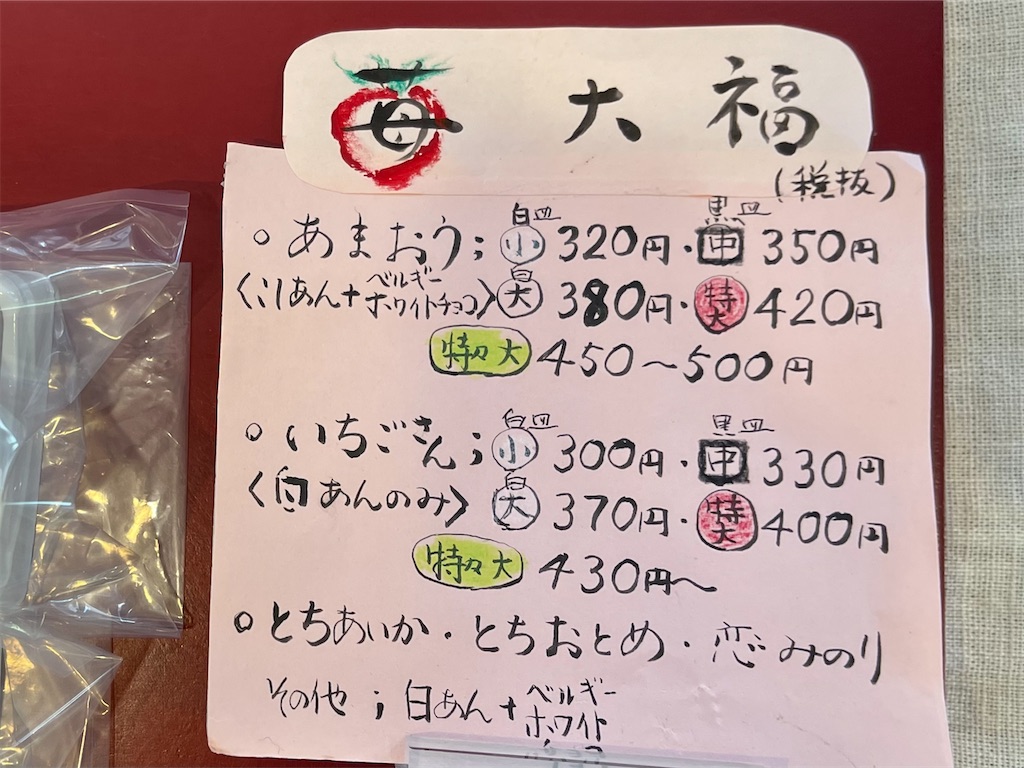 苺大福
(税抜)
白皿 黒皿
○ あまおう; 小 320円・中 350円
〈こしあん+ベルギーホワイトチョコ〉 大 380円・特大 420円
特々大 450〜500円
白皿 黒皿
○ いちごさん; 小 300円・中 330円
〈白あんのみ〉 大 370円・特大 400円
特々大 430円〜
○ とちあいか・とちおとめ・恋みのり
その他; 白あん+ベルギーホワイト